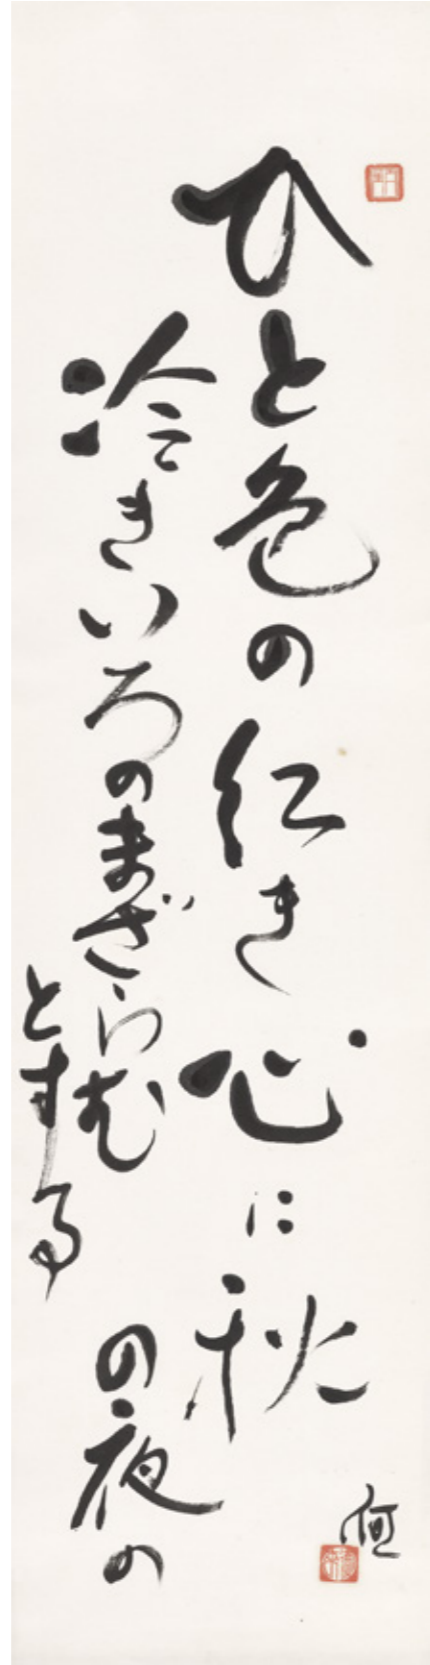 ひと色の紅き心に秋
の夜の
冷きいろのまざらむ
とする